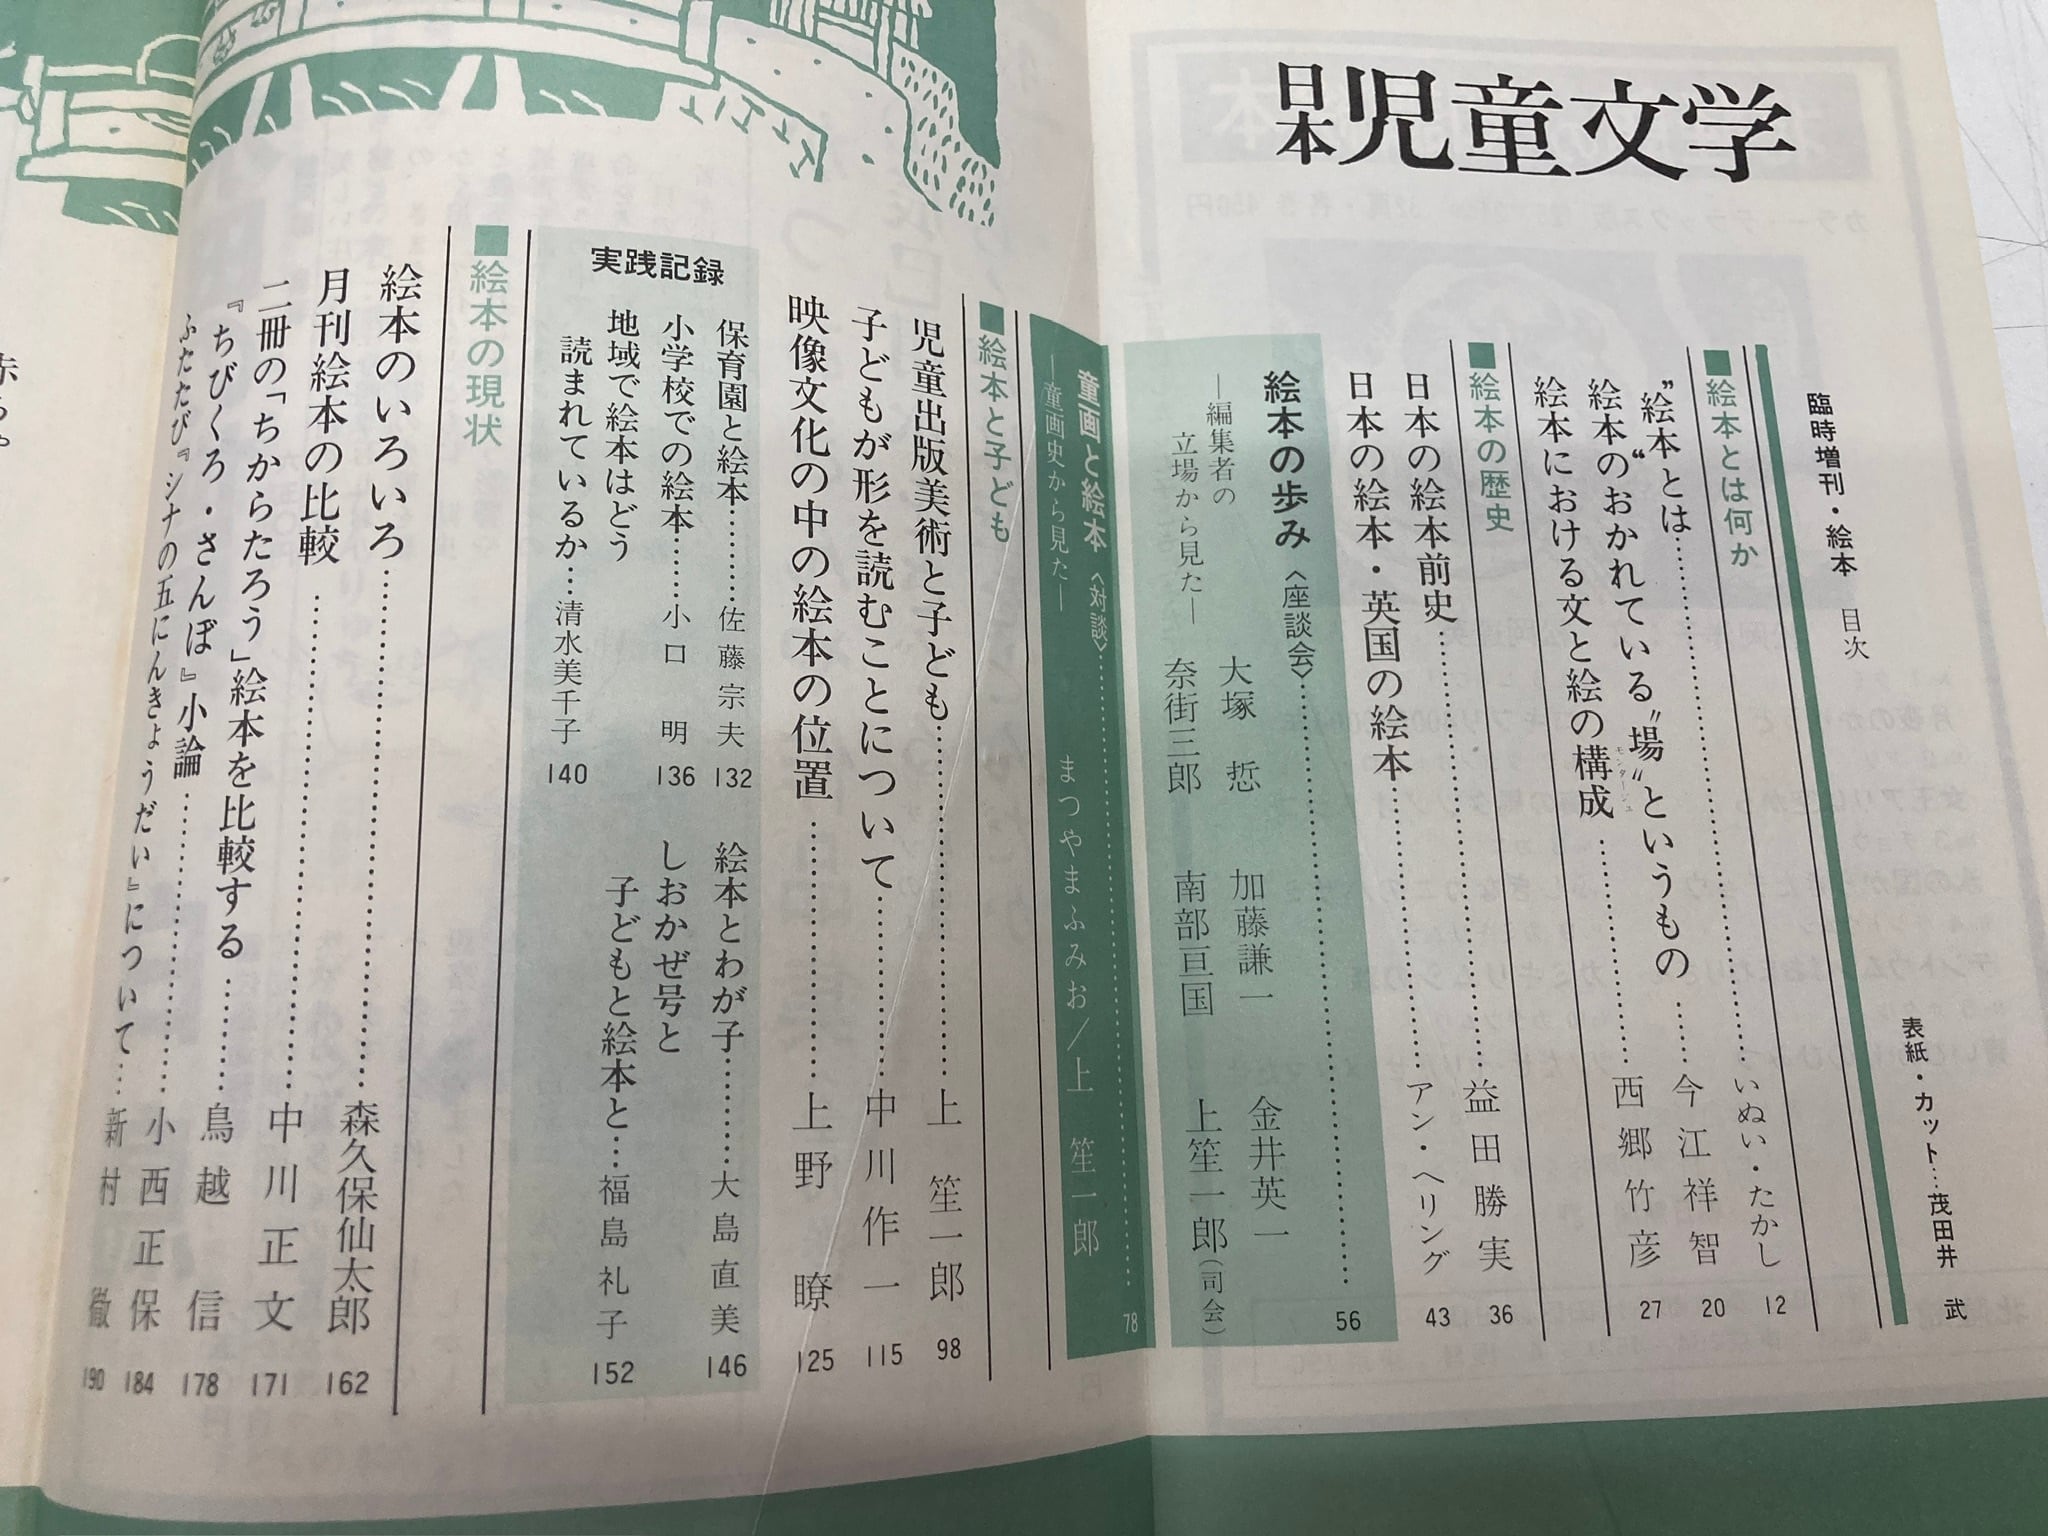 日本児童文学
臨時増刊・絵本 目次
表紙・カット…茂田井 武
■絵本とは何か
〝絵本〟とは……いぬい・たかし 12
絵本のおかれている〝場〟というもの……今江祥智 20
絵本における文と絵の構成……西郷竹彦 27
モンタージュ
■絵本の歴史
日本の絵本前史……益田勝実 36
日本の絵本・英国の絵本……アン・ヘリング 43
絵本の歩み〈座談会〉……56
―編集者の
立場から見た―
大塚 悊 加藤謙一 金井英一
奈街三郎 南部亘国 上笙一郎(司会)
童画と絵本〈対談〉……78
―童画史から見た―
まつやまふみお/上 笙一郎
■絵本と子ども
児童出版美術と子ども……上 笙一郎 98
子どもが形を読むことについて……中川作一 115
映像文化の中の絵本の位置……上野 瞭 125
実践記録
保育園と絵本……佐藤宗夫 132
小学校での絵本……小口 明 136
地域で絵本はどう
読まれているか…清水美千子 140
絵本とわが子……大島直美 146
しおかぜ号と
子どもと絵本と…福島礼子 152
■絵本の現状
絵本のいろいろ……森久保仙太郎 162
月刊絵本の比較……中川正文 171
二冊の「ちからたろう」絵本を比較する……鳥越 信 178
『ちびくろ・さんぼ』小論……小西正保 184
ふたたび『シナの五にんきょうだい』について……新村 徹 190